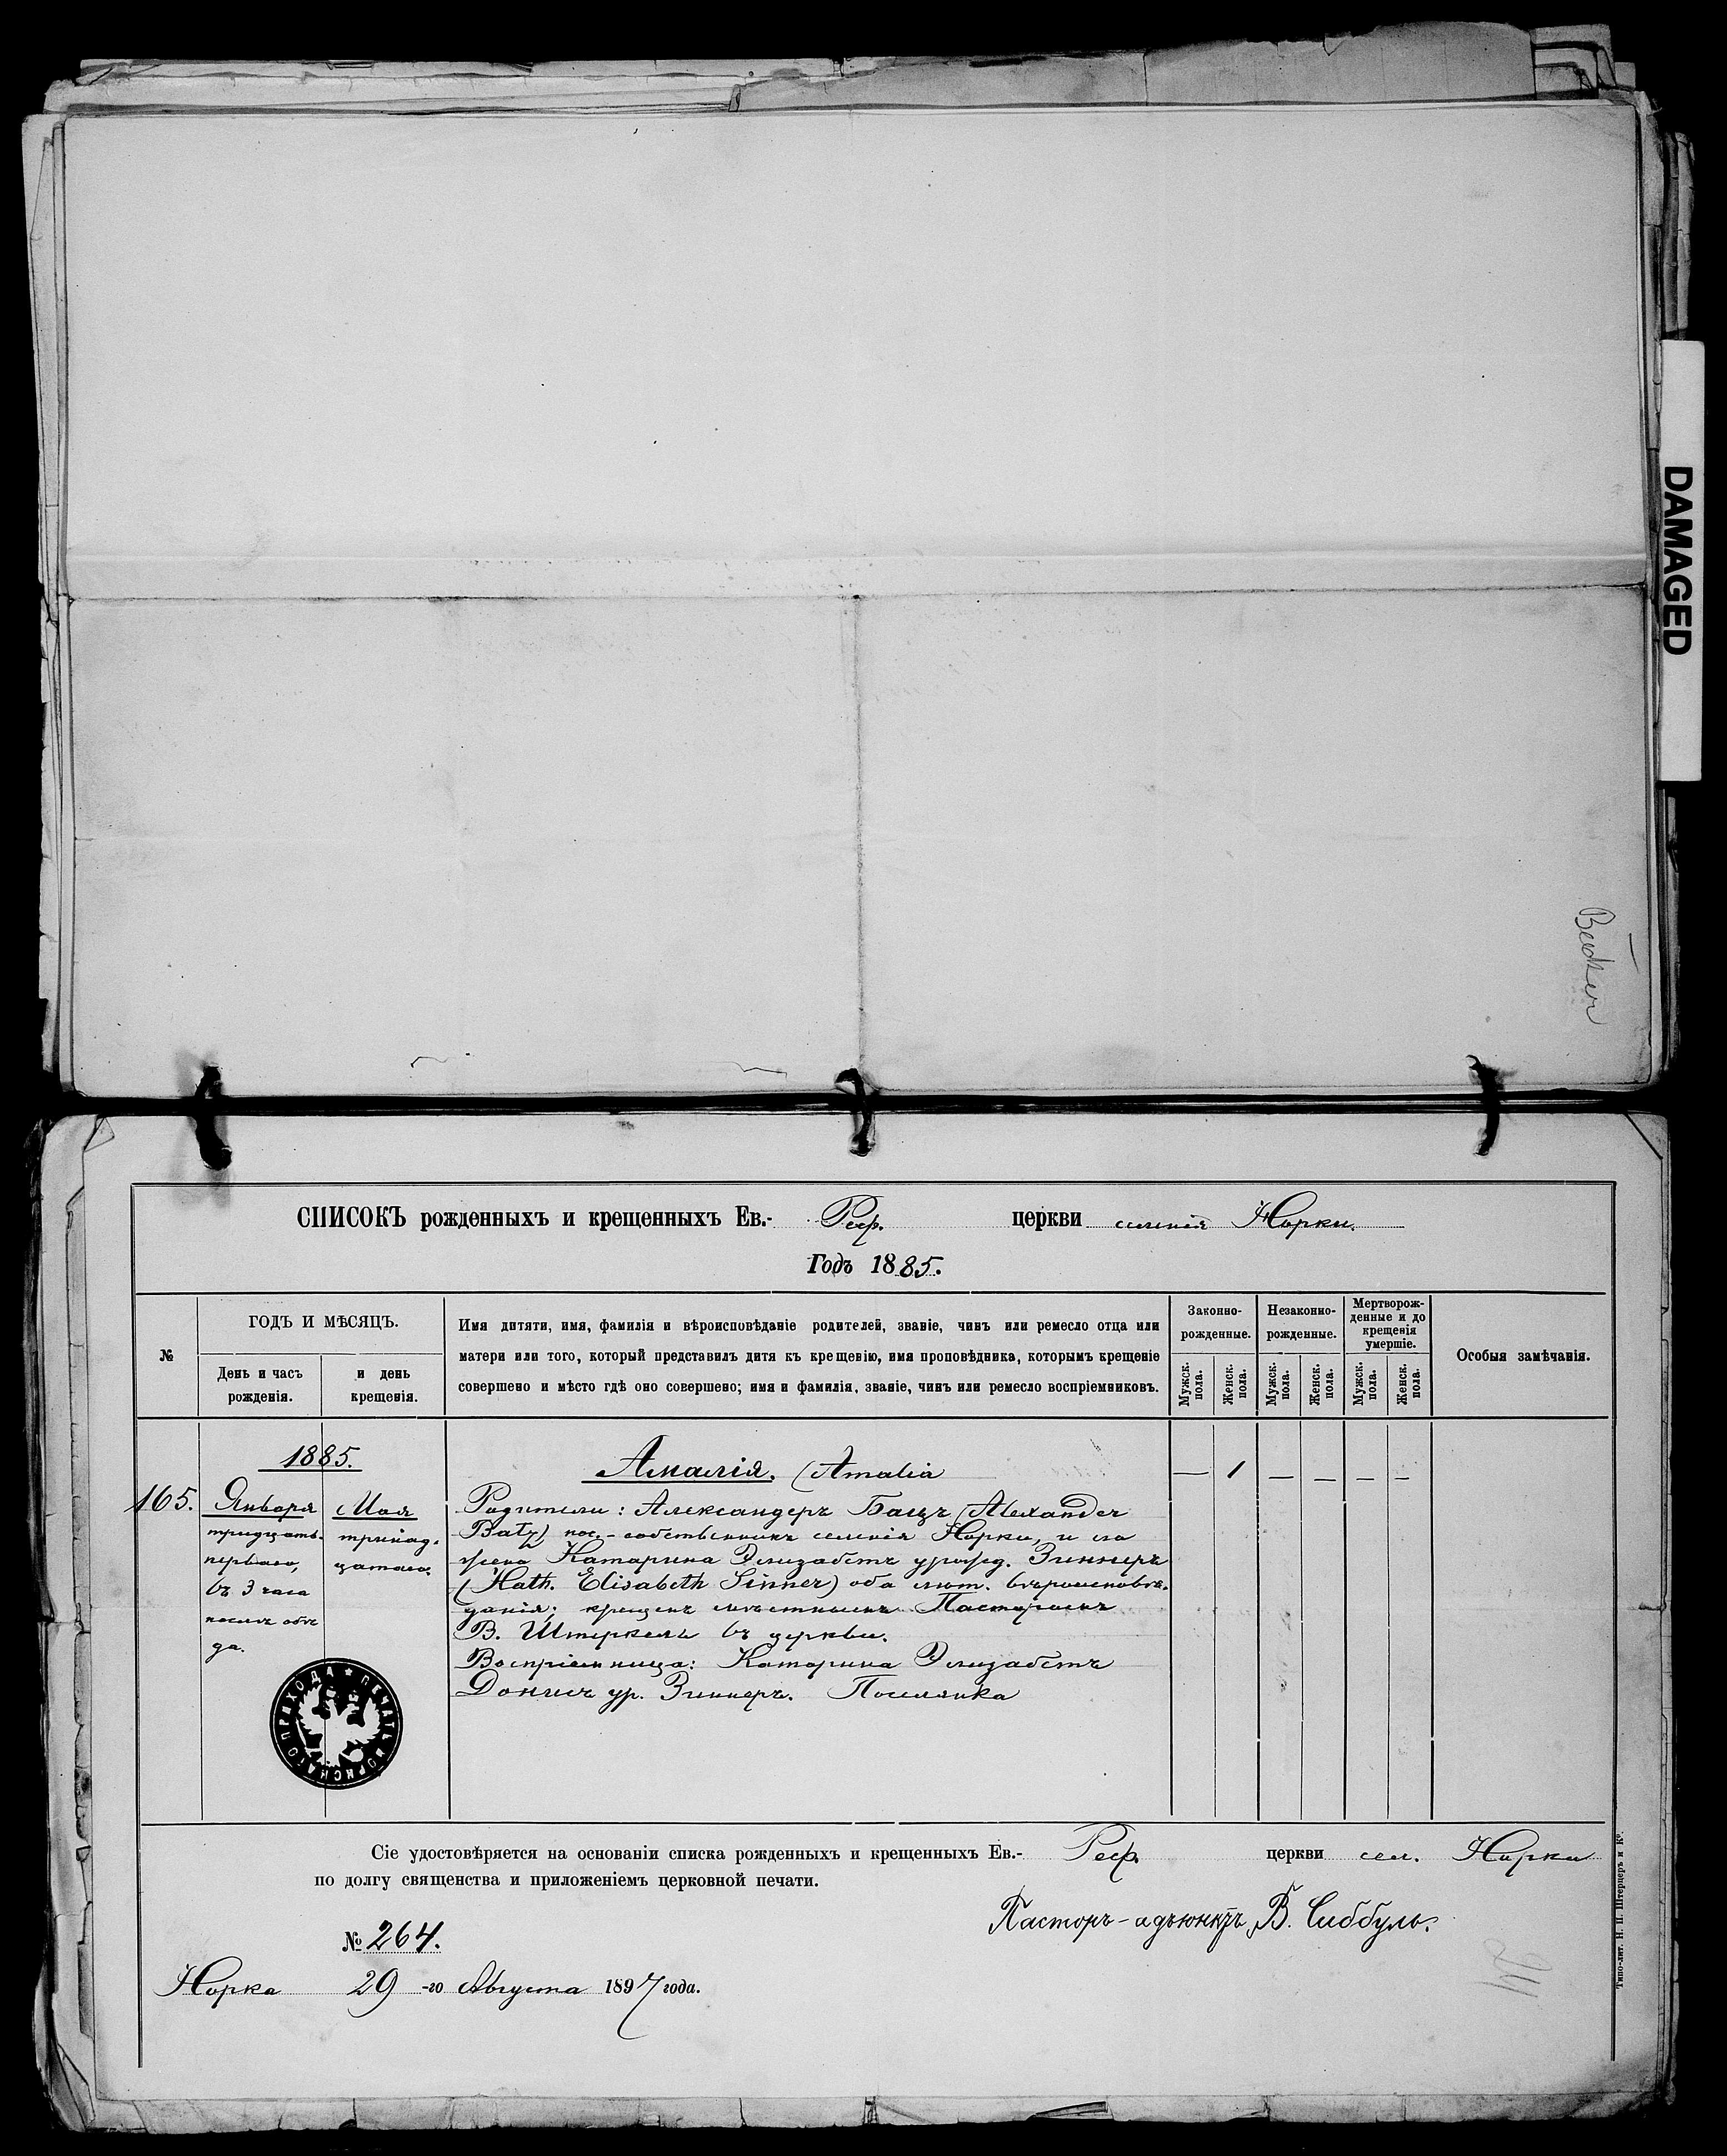 DAMAGED
СПИСОКЪ рожденныхъ и крещенныхъ Ев.- Реф. церкви селенія Норки.
Годъ 1885.
№
ГОДЪ И МѢСЯЦЪ.
День и часъ рожденія.
и день крещенія.
Имя дитяти, имя, фамилія и вѣроисповѣданіе родителей, званіе, чинъ или ремесло отца или
матери или того, который представилъ дитя къ крещенію, имя проповѣдника, которымъ крещеніе
совершено и мѣсто гдѣ оно совершено; имя и фамилія, званіе, чинъ или ремесло воспріемниковъ.
Законно-
рожденные.
Незаконно-
рожденные.
Мертворож-
денные и до
крещенія
умершіе.
Мужск. пола.
Женск. пола.
Мужск. пола.
Женск. пола.
Мужск. пола.
Женск. пола.
Особыя замѣчанія.
1885.
165.
Января
тридцать-
перваго,
въ 3 часа
послѣ обѣ
да.
Мая
тринад-
цатаго.
Амалія. (Amalia
— 1 — — — —
Родители: Александеръ Бацъ (Alexander
Batz) пос.-собственникъ селенія Норки, и его
жена Катарина Элизабетъ урожд. Зиннеръ
(Kath. Elisabeth Sinner) оба лют. вѣроисповѣ-
данія; крещенъ мѣстнымъ Пасторомъ
В. Штеркель въ церкви.
Воспріемница: Катарина Элизабетъ
ур. Зиннеръ. Поселянка
ПЕЧАТЬ НОРКСКАГО ПРИХОДА
Сіе удостовѣряется на основаніи списка рожденныхъ и крещенныхъ Ев.- Реф. церкви сел. Норки
по долгу священства и приложеніемъ церковной печати.
Пасторъ-адъюнктъ В. Сиббуль.
№ 264.
Норка 29-го Августа 1897 года.
Типо-лит. Н. П. Штерцеръ и Ко.